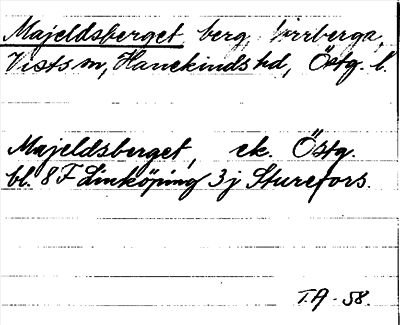 Majeldsberget, berg, Norrberga,
Vists sn, Hanekinds hd, Östg. l.
Majeldsberget, ek. Östg.
bl. 8 F Linköping 3j Sturefors.
T.A - 58.